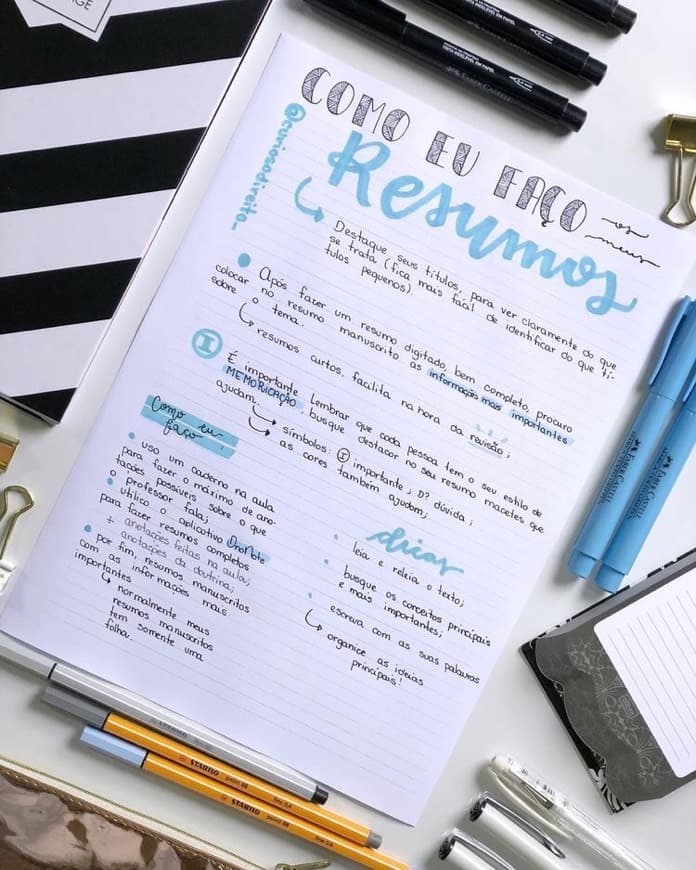 COMO EU FAÇO
os
meus
Resumos
@curiosodireito_
Destaque seus títulos, para ver claramente do que
se trata (fica mais fácil de identificar do que tí-
tulos pequenos).
• Após fazer um resumo digitado, bem completo, procuro
colocar no resumo manuscrito as informação mais importantes
sobre o tema.
resumos curtos, facilita na hora da revisão;
I É importante lembrar que cada pessoa tem o seu estilo de
MEMORICAÇÃO, busque destacar no seu resumo macetes que
ajudam.
símbolos: I importante; D? dúvida;
as cores também ajudam;
Como eu
faço:
• uso um caderno na aula
para fazer o máximo de ano-
tações possíveis sobre o que
o professor fala;
• utilizo o aplicativo OneNote
para fazer resumos completos
+ anotações feitas na aula;
+ anotações da doutrina;
• por fim, resumos manuscritos
com as informações mais
importantes
normalmente meus
resumos manuscritos
tem somente uma
folha.
dicas
• leia e releia o texto;
• busque os conceitos principais
e mais importantes;
• escreva com as suas palavras
organize as ideias
principais!
FABER-CASTELL
FABER-CASTELL
FABER-CASTELL
STABILO
STABILO point 88 fine 0.4
STABILO point 88 fine 0.4